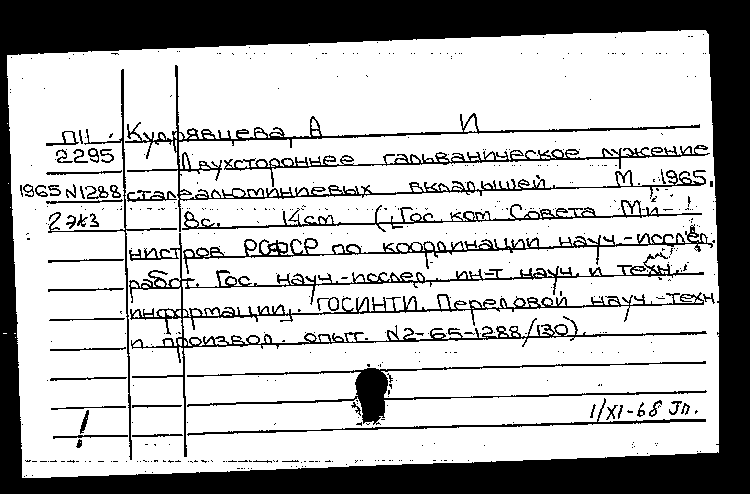 П11 Кудрявцева, А И
2295 Двухстороннее гальваническое лужение
1965 N1288 сталеалюминиевых вкладышей. М. 1965.
2 экз 8с. 14см. (Гос. ком. Совета Ми-
нистров РСФСР по координации науч.-исслед.
работ. Гос. науч.-исслед. ин-т науч. и техн.
информации. ГОСИНТИ. Передовой науч.-техн.
и производ. опыт. N2-65-1288/130).
1/XI-68